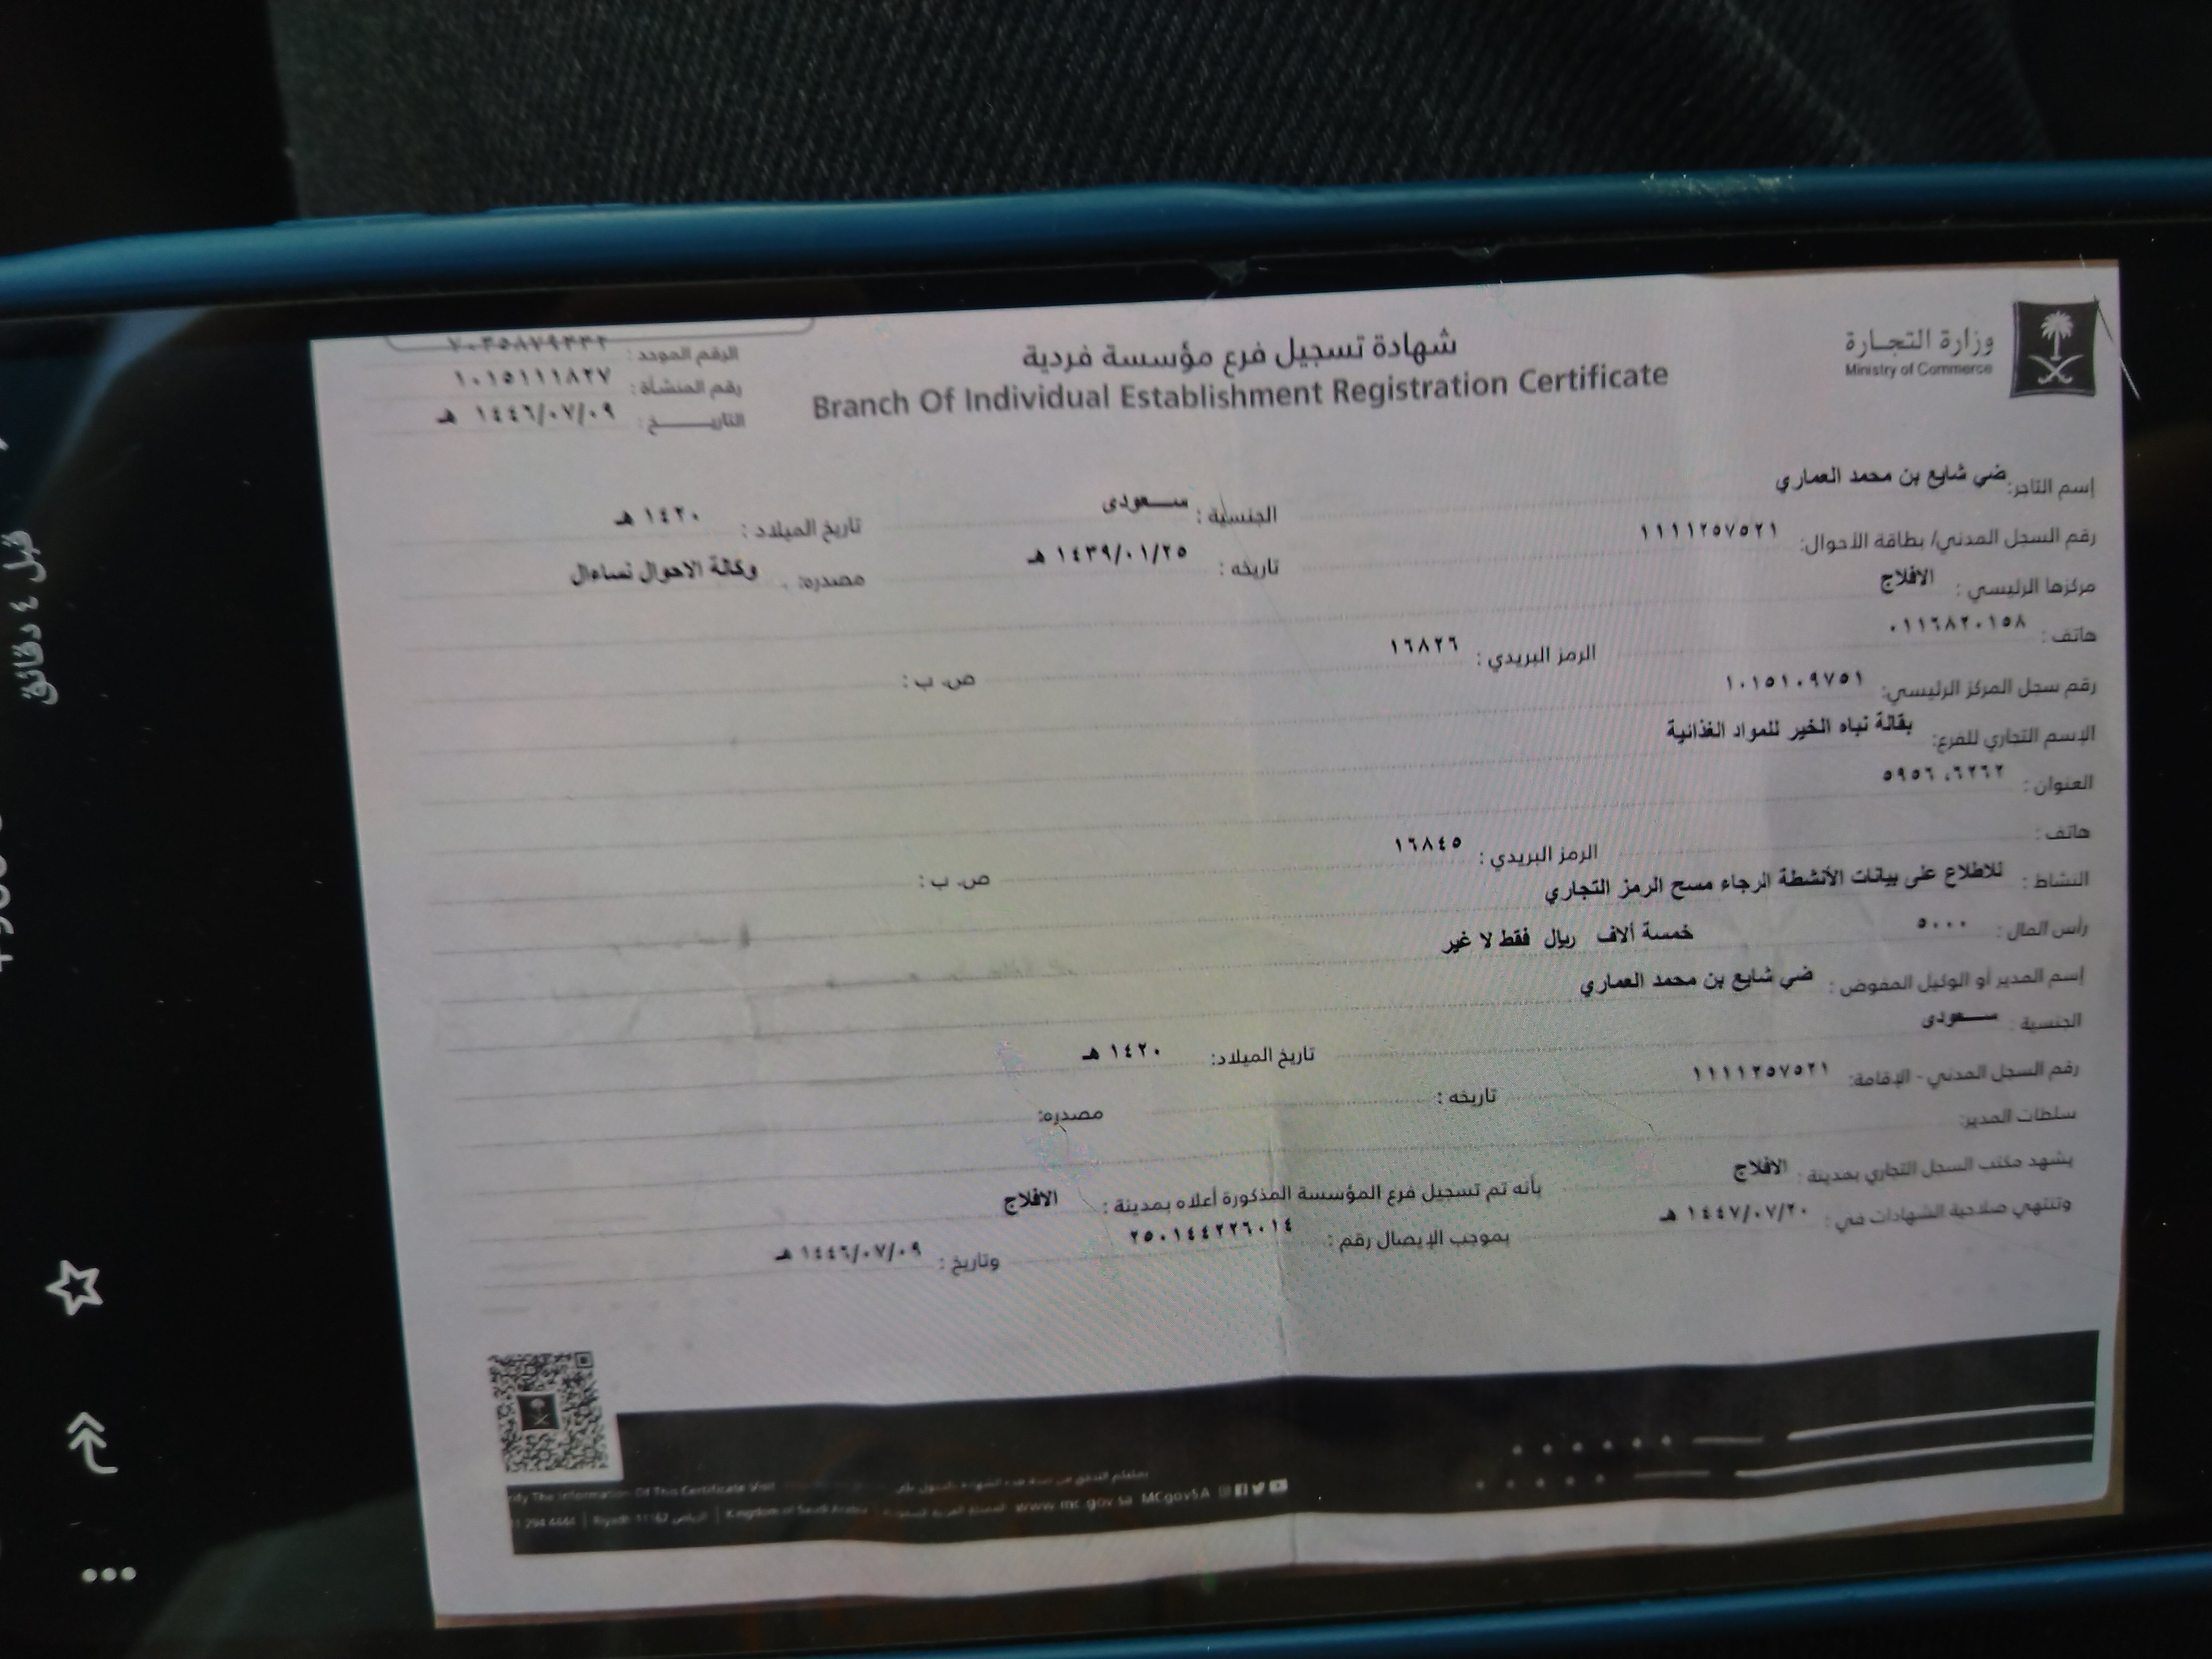 وزارة التجارة
Ministry of Commerce
شهادة تسجيل فرع مؤسسة فردية
Branch Of Individual Establishment Registration Certificate
الرقم الموحد :
رقم المنشأة : ١٠١٥١١١٨٢٧
التاريـــــخ : ١٤٤٦/٠٧/٠٩ هـ
إسم التاجر: ضي شايع بن محمد العماري الجنسية : ســـعودى تاريخ الميلاد : ١٤٢٠ هـ
رقم السجل المدني/ بطاقة الأحوال: ١١١١٢٥٧٥٢١ تاريخه : ١٤٣٩/٠١/٢٥ هـ مصدره: وكالة الاحوال نساءال
مركزها الرئيسي : الافلاج
هاتف : ٠١١٦٨٢٠١٥٨ الرمز البريدي : ١٦٨٢٦ ص. ب :
رقم سجل المركز الرئيسي: ١٠١٥١٠٩٧٥١
الإسم التجاري للفرع: بقالة تباه الخير للمواد الغذائية
العنوان : ٦٢٦٢، ٥٩٥٦
هاتف : الرمز البريدي : ١٦٨٤٥ ص. ب :
النشاط : للاطلاع على بيانات الأنشطة الرجاء مسح الرمز التجاري
رأس المال : ٥٠٠٠ خمسة ألاف ريال فقط لا غير
إسم المدير أو الوكيل المفوض : ضي شايع بن محمد العماري
الجنسية : ســـعودى تاريخ الميلاد: ١٤٢٠ هـ
رقم السجل المدني - الإقامة: ١١١١٢٥٧٥٢١ تاريخه : مصدره:
سلطات المدير:
يشهد مكتب السجل التجاري بمدينة : الافلاج بأنه تم تسجيل فرع المؤسسة المذكورة أعلاه بمدينة : الافلاج
وتنتهي صلاحية الشهادات في : ١٤٤٧/٠٧/٢٠ هـ بموجب الإيصال رقم : ٢٥٠١٤٤٢٢٦٠١٤ وتاريخ : ١٤٤٦/٠٧/٠٩ هـ
The Information Of This Certificate Visit
294 4444 | Riyadh 11162 الرياض | Kingdom of Saudi Arabia المملكة العربية السعودية www.mc.gov.sa MCgovSA
قبل ٤ دقائق